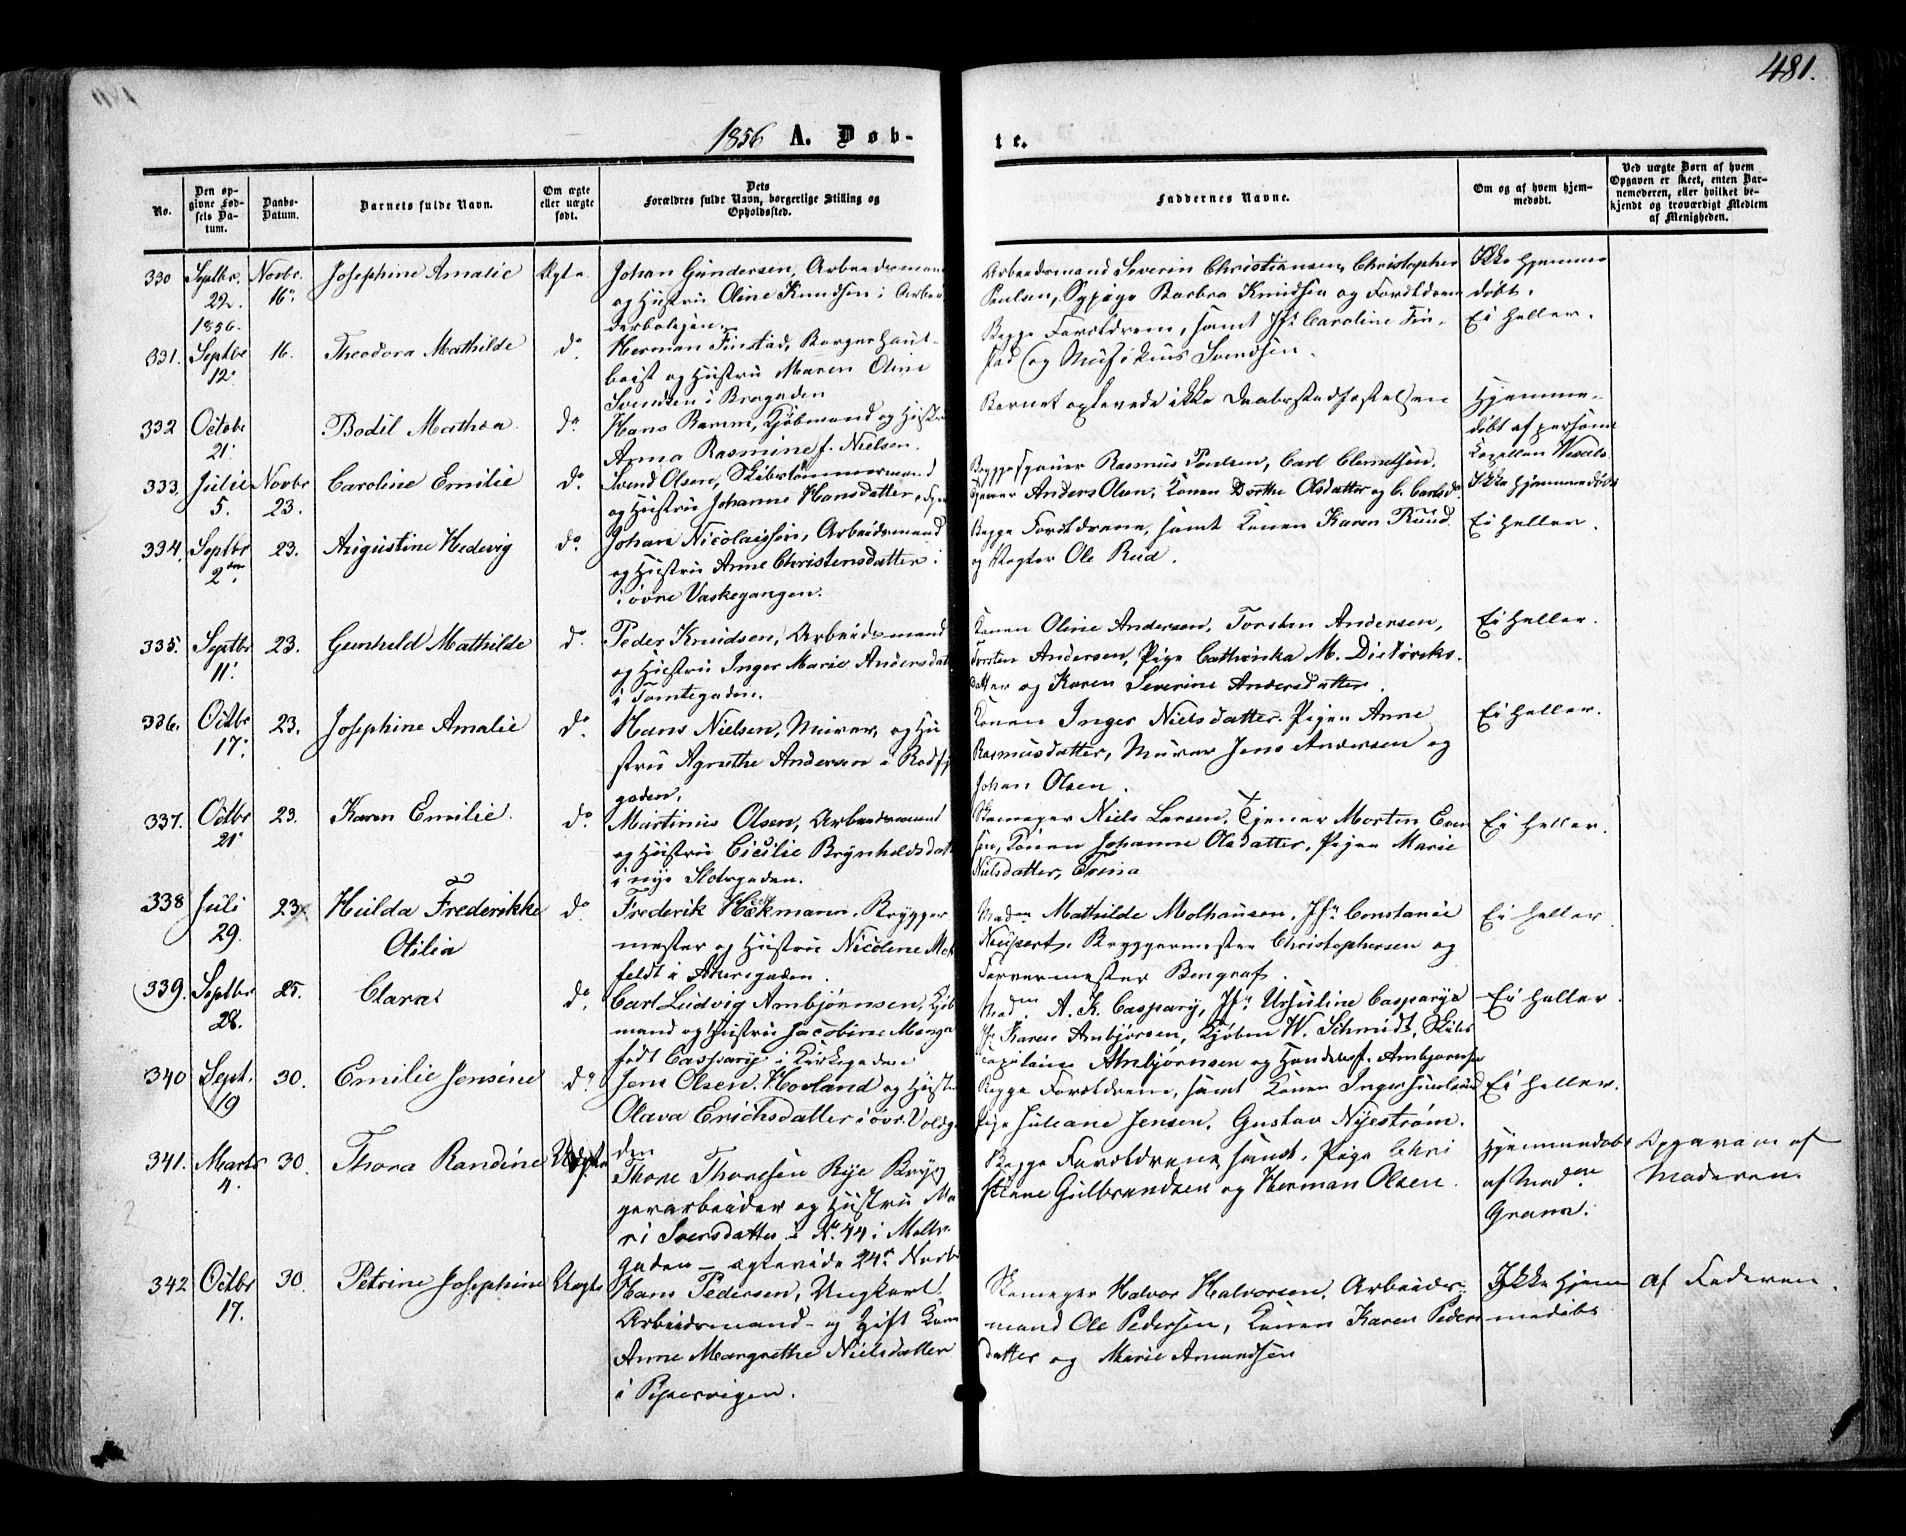 481.
1856 A. Døb-
te.
No.
Den opgivne Fødsels Datum.
Daabs-Datum.
Barnets fulde Navn.
Om ægte eller uægte født.
Dets Forældres fulde Navn, borgerlige Stilling og Opholdssted.
Faddernes Navne.
Om og af hvem hjemmedøbt.
Ved uægte Børn af hvem Opgaven er skeet, enten Barnemoderen, eller hvilket bekjendt og troværdigt Medlem af Menigheden.
330 Septbr. 22. 1856. Novbr. 16. Josephine Amalie Ægte
Johan Gundersen, Arbeidsmand
og Hustru Oline Knudsen i Arbei
derboligen.
Arbeidsmand Severin Christiansen, Christopher
Paulsen, Sypige Barbra Knudsen og Forældrene
Ikke hjemme
døbt.
331. Septbr 12. 16. Theodora Mathilde do
Herman Finstad, Borger Haut-
boist og Hustru Maren Oline
Svendsen i Brogaden
Begge Forældrene, samt Jfr Caroline Fin-
stad og Musikus Svendsen.
Ei heller.
332 Octobr 21. Bodil Mathea do
Hans Ramm, Kjøbmand og Hustru
Anna Rasmine f. Nielsen.
Barnet oplevede ikke Daabsstadfæstelsen
Hjemme-
døbt af personel
Capellan Wexels
333. Julii 5. Novbr 23. Caroline Emilie do
Svend Olsen, Skibstømmermand
og Hustru Johanne Hansdatter
Rasmus Poulsen, Carl Clemetsen,
Anders Olsen, Konen Dorthe Olsdatter og C. Carlsd.
Ikke hjemmedøbt
334. Septbr 2den 23. Augustine Hedevig do
Johan Nicolaissen, Arbeidsmand
og Hustru Anne Christensdatter
i øvre Vaskegangen.
Begge Forældrene, samt Konen Karen Ruud
og Vægter Ole Rud.
Ei heller.
335. Septbr 11. 23. Gunhild Mathilde do
Peder Knudsen, Arbeidsmand
og Hustru Inger Marie Andersdat
i Tomtegaden.
Konen Oline Andersen, Torsten Andersen,
Torsten Andersen, Pige Cathinka M. Didriks-
datter og Karen Severine Andersdatter.
Ei heller.
336. Octbr 17. 23. Josephine Amalie do
Hans Nielsen, Murer, og Hu
stru Agnethe Andersen i Rodfyl
gaden.
Konen Inger Nielsdatter. Pigen Anne
Rasmusdatter, Murer Jens Andersen og
Johan Olsen.
Ei heller.
337. Octbr 21 23. Karen Emilie. do
Martinus Olsen, Arbeidsmand
og Hustru Cicilie Brynhildsdatt
i nye Slotsgaden.
Skomager Niels Larsen, Tjener Morten Even
sen, Konen Johanne Olsdatter, Pigen Marie
Nielsdatter,
Ei heller.
338 Juli 29. 23 Hulda Frederikke
Otilia do
Frederik Heckmann, Brygger
mester og Hustru Nicoline Mol
feldt i Akersgaden.
Madm Mathilde Molhausen, Jfr Constance
Neupert, Bryggermester Christophersen og
Farvermester Bengraf.
Ei heller
339. Septbr 28. 25. Clara do
Carl Ludvig Ambjørnsen, Kjøb
mand og Hustru Jacobine Marga
født Caspary i Kirkegaden
Madm. A. K. Caspary, Jfr Ursuline Caspary
Jfr Karen Ambjørnsen, Kjøbm W. Schmidt, Skibs
capitaine Ambjørnsen og Handelsf. Ambjørnsen
Ei heller.
340 Sept. 19 30. Emilie Jensine do
Jens Olsen Hovland og Hustru
Olava Erichsdatter i øvr. Voldga
den
Begge Forældrene, samt Konen Inger
Pige Juliane Jensen, Gustav Nyestrøm.
Ei heller.
341. Marts 4. 30. Thora Randine Uægte
Thore Thoresen Rye Bryg
gerarbeider og Hustru Ma
ri Iversdatter i No. 44 i Møller
gaden - ægteviede 24de Novbr
Begge Forældrene samt Pige Chri
stiane Gulbrandsen og Herman Olsen.
Hjemmedøbt
af Madm
Grann.
Opgaven af
Moderen.
342 Octbr 17. 30. Petrine Josephine Uægte
Hans Pedersen, Ungkarl
Arbeidsmand - og Gift Kone
Anne Margrethe Nielsdatter
i Pipervigen.
Skomager Halvor Halvorsen, Arbeids-
mand Ole Pedersen, Konen Karen Peders
datter og Marie Amundsen
Ikke hjem
medøbt
af Faderen.